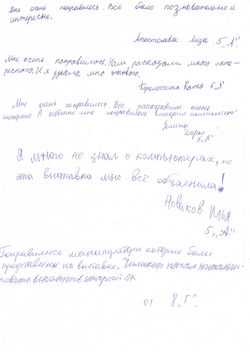 мне очень понравилось Всё было познавательно и
интересно.
Апостолова Лиза 5 „А"
Мне очень понравилось. Нам рассказали много инте-
ресного. И я узнала много нового.
5 „А"
Мне очень понравилось Всё рассказали очень
интересно А особенно мне понравилась история компьютеров
5 „А"
Я много не знал о компьютерах, но
эта выставка мне всё объяснила!
Новиков Илья
5 „А"
Понравились манипуляторы которые были
представлены на выставке.
от 8 „Г".